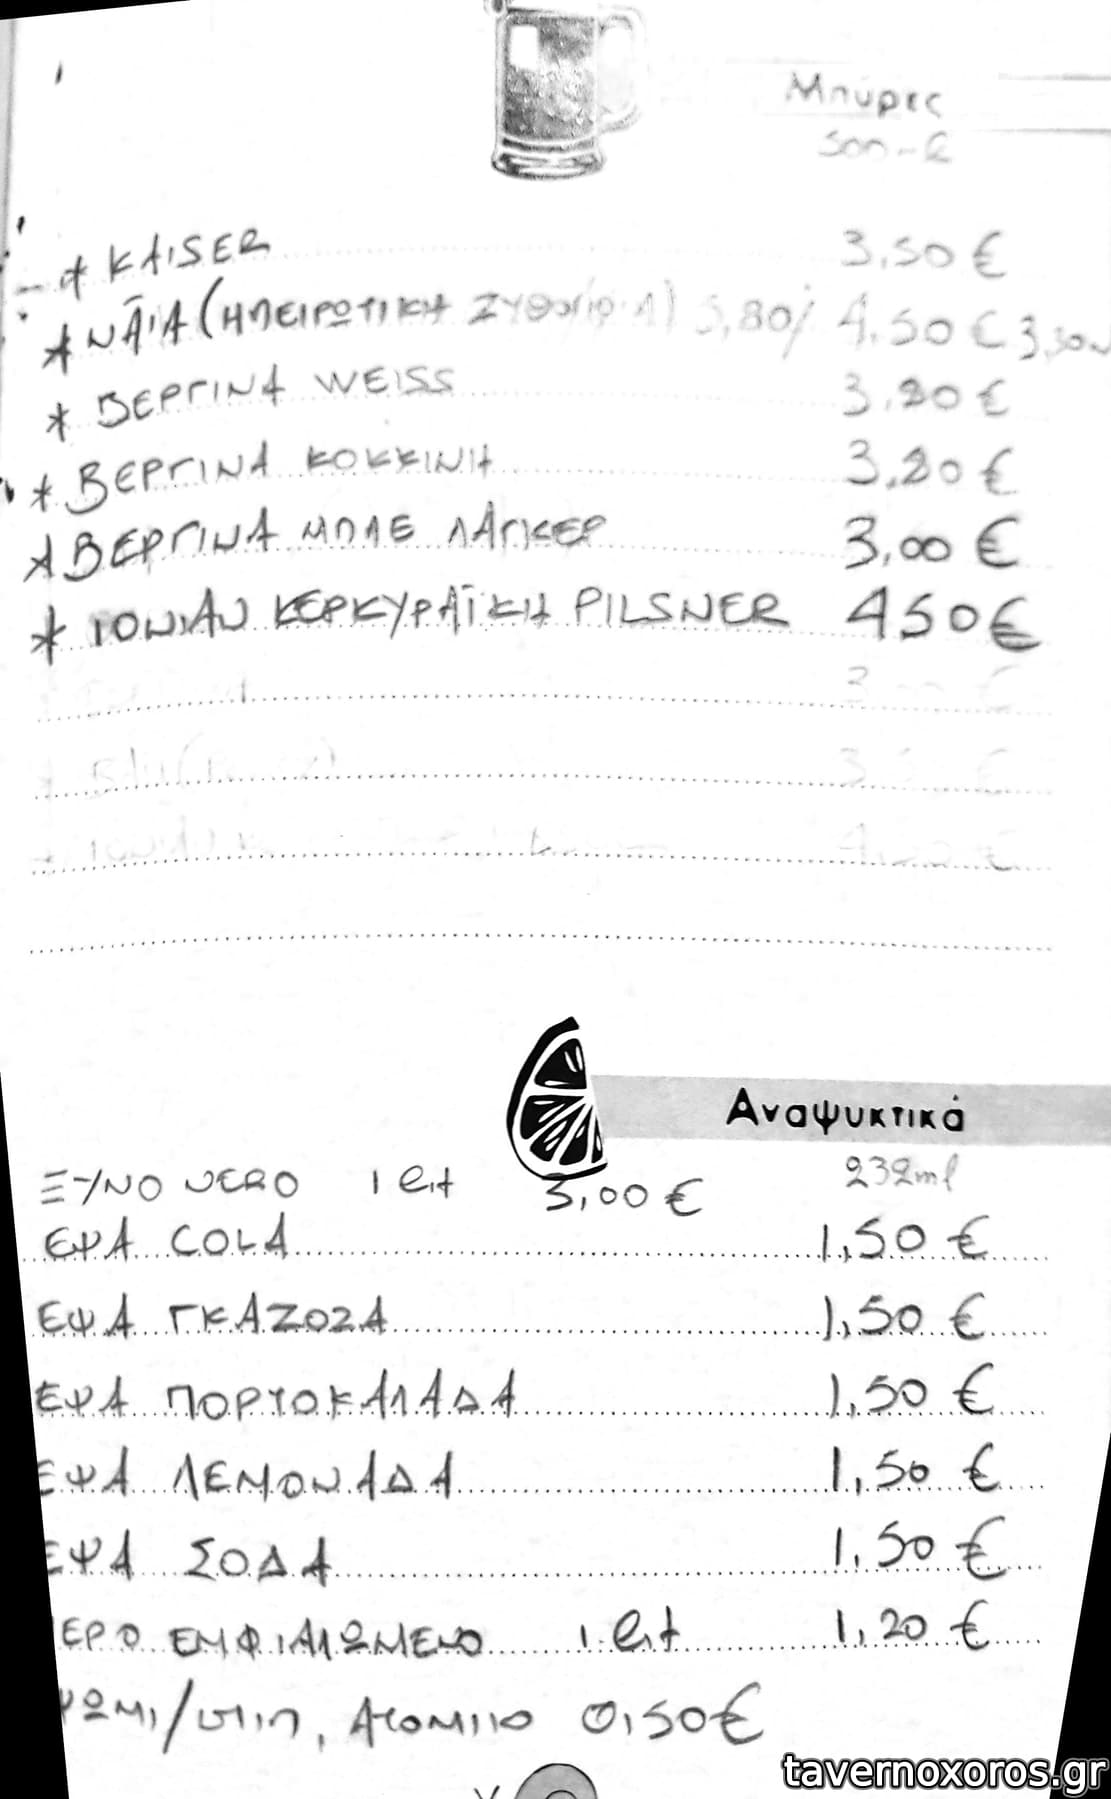 Μπύρες
500-
* KAISER 3,50 €
* ΝΑΪΑ (ΗΠΕΙΡΩΤΙΚΗ 3,80/ 4.50 €
* ΒΕΡΓΙΝΑ WEISS 3.20 €
* ΒΕΡΓΙΝΑ ΚΟΚΚΙΝΗ 3,20 €
* ΒΕΡΓΙΝΑ ΜΠΛΕ ΛΑΓΚΕΡ 3,00 €
* ΙΟΝΙΑΝ ΚΕΡΚΥΡΑΪΚΗ PILSNER 450€
Αναψυκτικά
232ml
ΞΥΝΟ ΝΕΡΟ 1 lit 3,00 €
ΕΨΑ COLA 1,50 €
ΕΨΑ ΓΚΑΖΟΖΑ 1,50 €
ΕΨΑ ΠΟΡΤΟΚΑΛΑΔΑ 1,50 €
ΕΨΑ ΛΕΜΟΝΑΔΑ 1,50 €
ΕΨΑ ΣΟΔΑ 1,50 €
ΕΡΟ ΕΜΦΙΑΛΩΜΕΝΟ 1 lit 1,20 €
ΨΩΜΙ/ 0,50€
tavernoxoros.gr